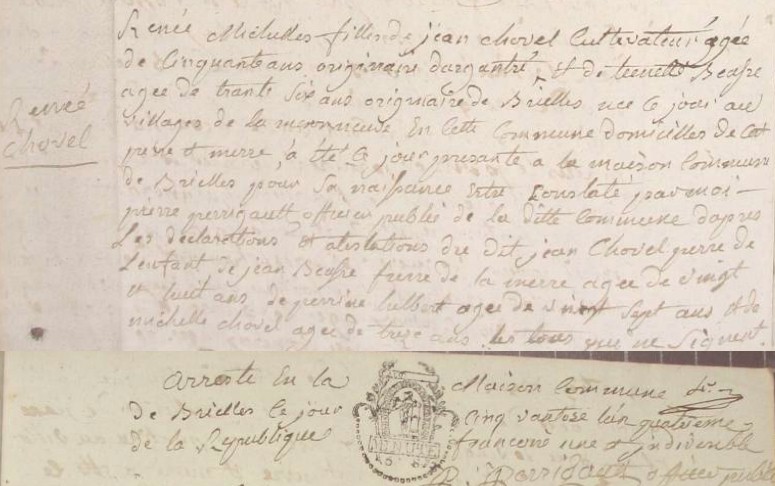 Renée
chovel
Renée Michelles filles de jean chovel Cultivateur agée
de Cinquante ans originaire dargantré Et de
agee de trante Six ans originaire de Brielles nee ce jour au
villages de la En Cette Commune domicilles de Cet
perre et merre, a été Ce jour presante a la maison Commune
de Brielles pour Sa naissance Entre Constaté par moi
pierre perrigault officier publié de la ditte Commune dapres
Les declarations Et atestations du dit jean Chovel perre de
Lenfant de jean frerre de la merre agee de vingt
Et huit ans de perrine agee de vingt Sept ans Et de
michelle chovel agee de treze ans les tous que ne Signent.
arreste En la Maison Commune
de Brielles Ce jour Cinq vantose lan quatrieme
de la Republique francoise une et indivisible
P. Perrigault officier public